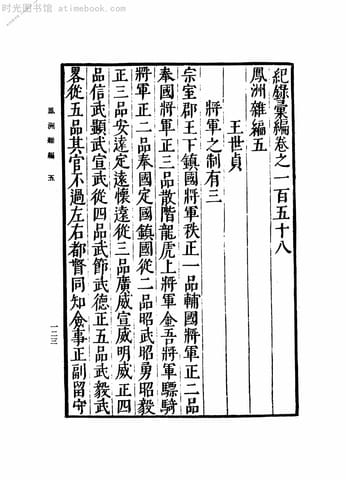 时光图书馆 - atimebook.com
紀錄彙編卷之一百五十八
鳳洲雜編五
王世貞
將軍之制有三
宗室郡王下鎮國將軍秩正一品輔國將軍正二品
奉國將軍正三品散階龍虎上將軍金吾將軍驃騎
將軍正二品奉國定國鎮國從二品昭武昭勇昭毅
正三品安遠定遠懷遠從三品廣威宣威明威正四
品信武顯武宣武從四品武節武德正五品武毅武
畧從五品其官不過左右都督同知僉事正副留守
鳳洲雜編 五
一二三